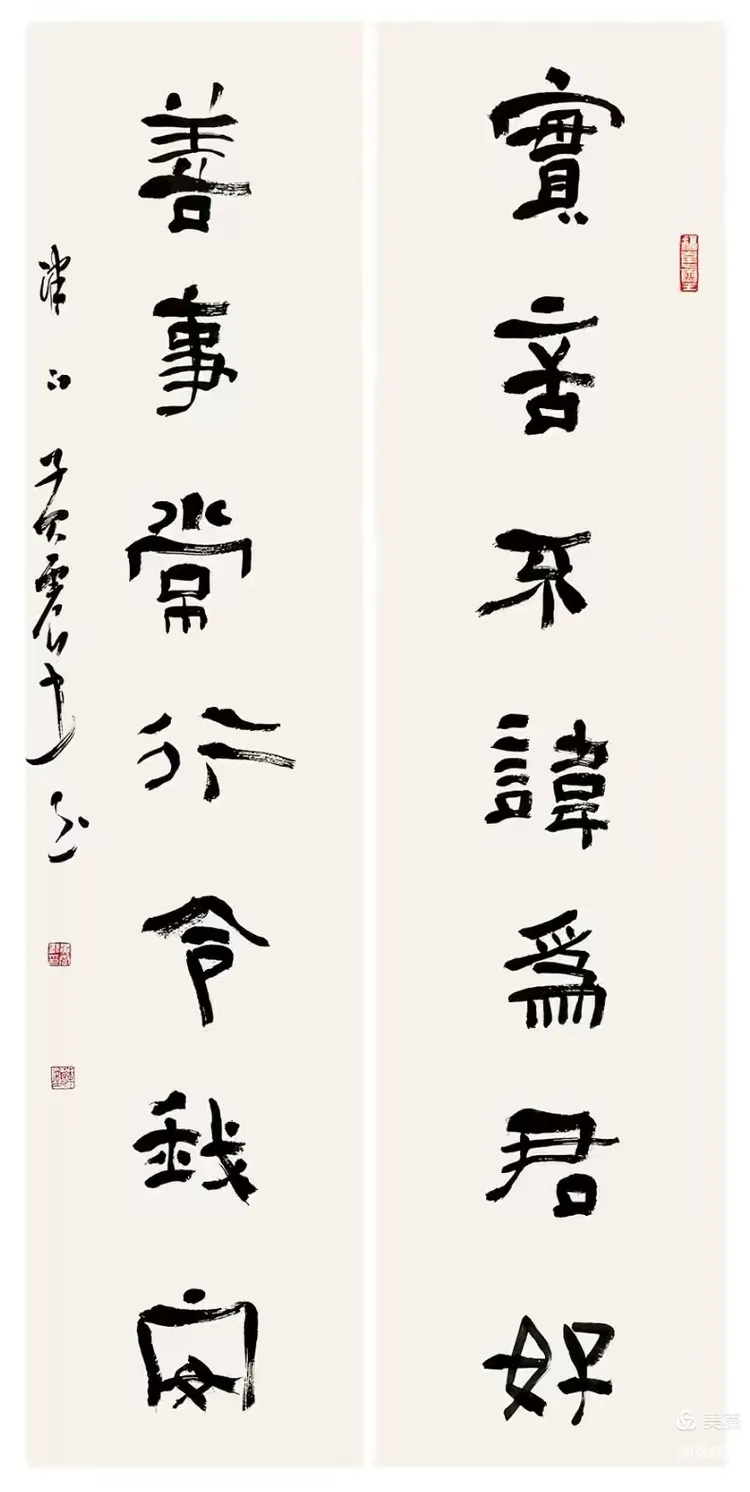 實言不諱爲君好
善事常行令我安
津門子
美篇